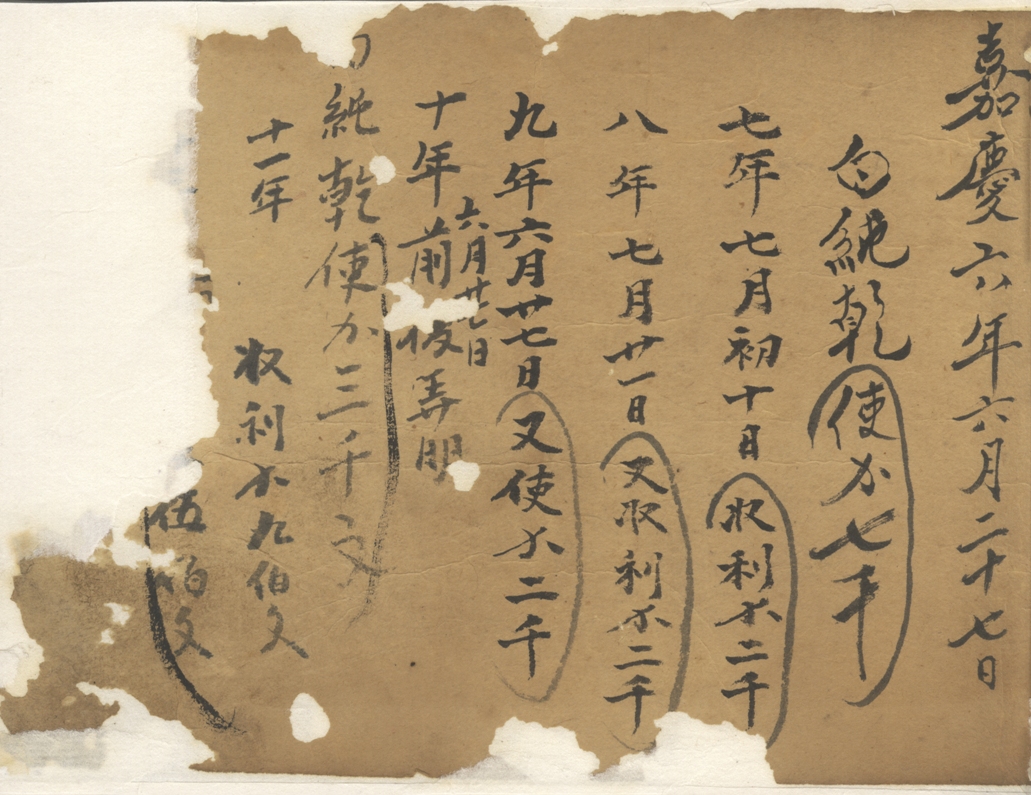 嘉慶六年六月二十七日
白純乾使尒七千
七年七月初十日収利尒二千
八年七月廿一日又収利尒二千
九年六月廿七日又使尒二千
六月廿七日
十年前仮算明
純乾使尒三千文
十一年収利尒九伯文
伍伯文